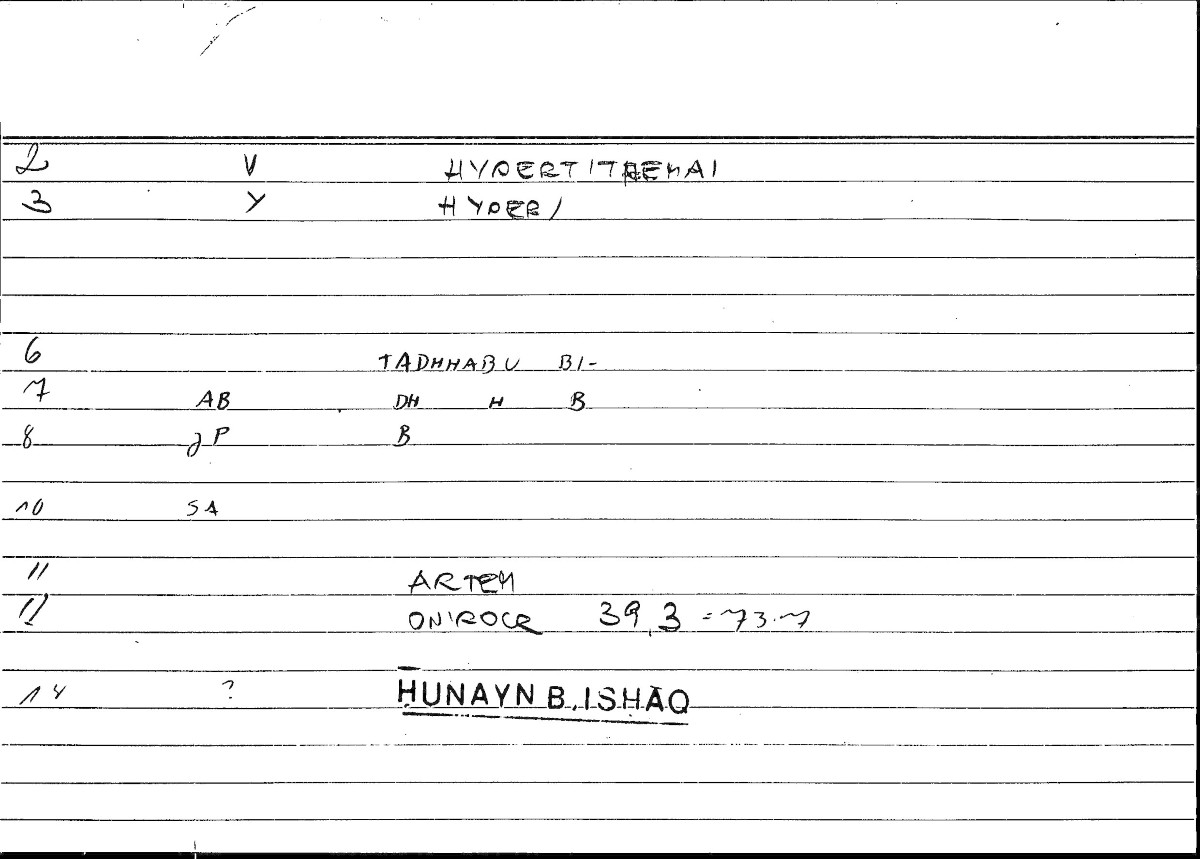 2 V HYPERTITHEMAI
3 Y HYPER /
6 TADHHABU BI-
7 AB DH H B
8 JP B
10 SA
11 ARTEM
11 ONIROCR 39,3 = 73.7
14 ? ḤUNAYN B. ISḤĀQ